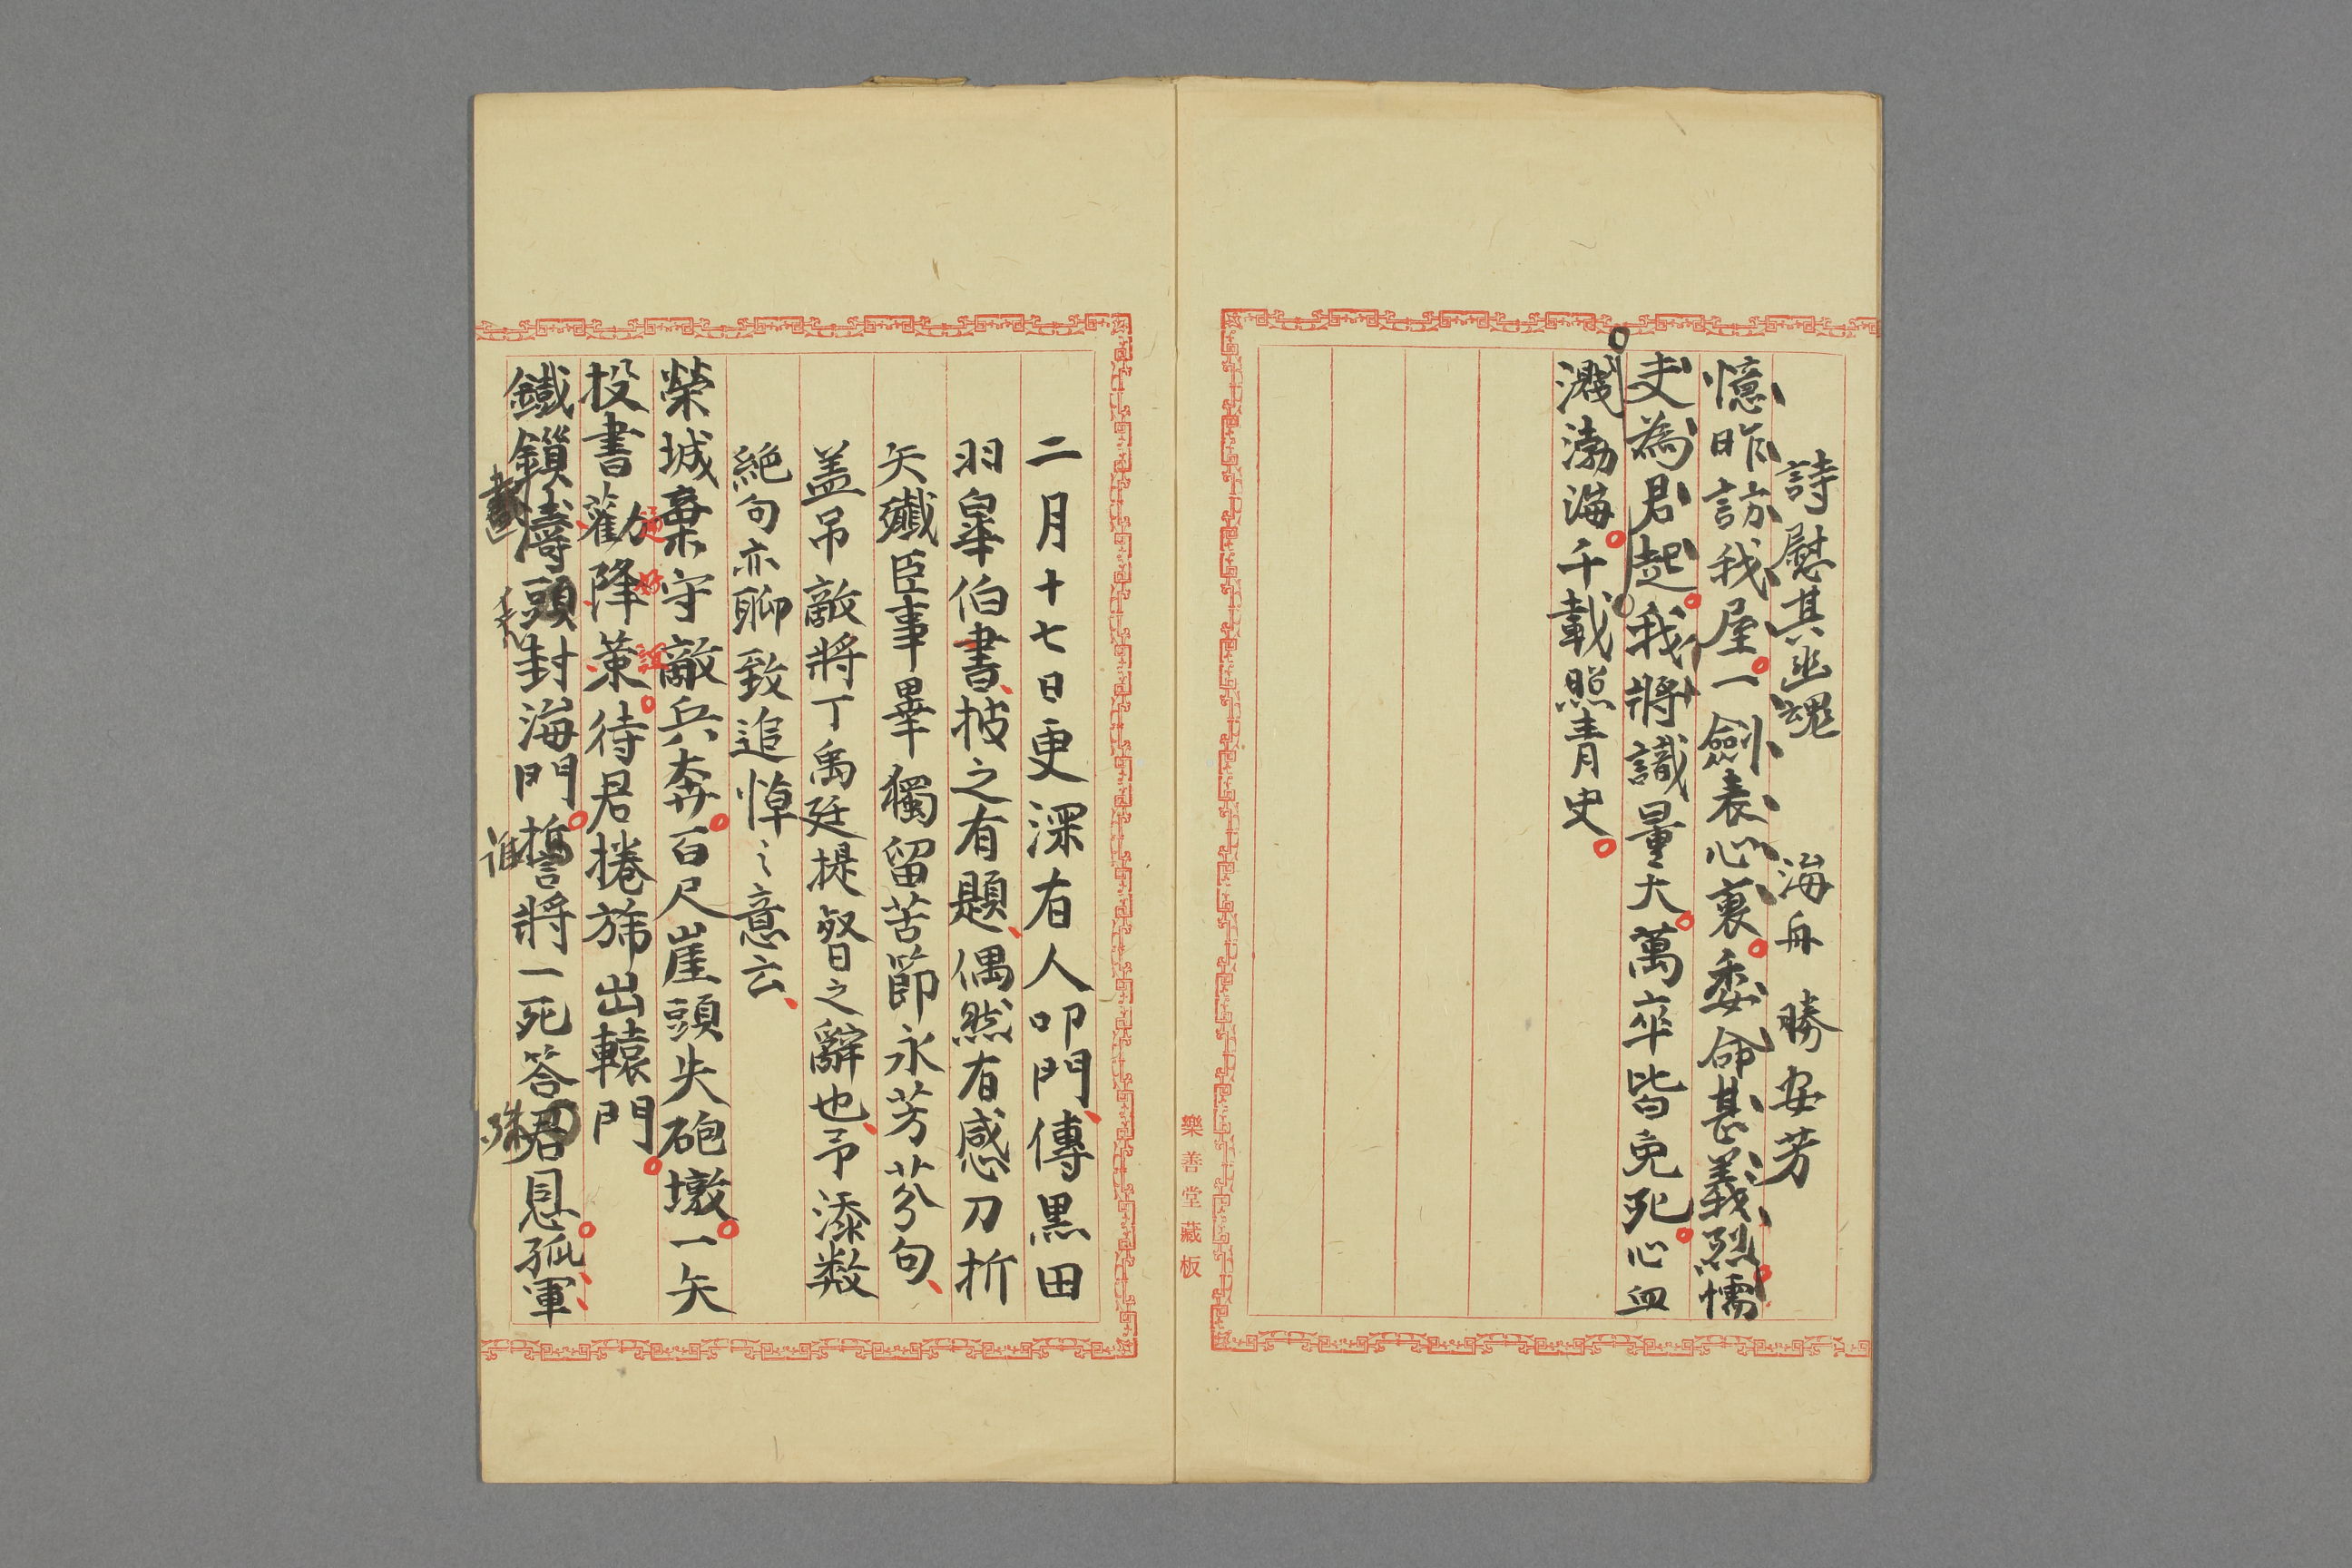 詩慰其幽魂　海舟　勝安芳
憶昨訪我屋。一劍表心裏。委命甚義烈。懦
夫為君起。我將識量大。萬卒皆免死。心血
濺渤海。千載照青史。
樂善堂藏板
二月十七日更深有人叩門、傳黒田
羽皐伯書、披之有題、偶然有感刀折
矢殲臣事畢獨留苦節永芳芬句、
盖吊敵將丁禹廷提督之辭也、予添数
絶句亦聊致追悼之意云、
榮城棄守敵兵奔。百尺崖頭失砲墩。一矢
投書勸降策。待君捲旆出轅門。
鐵鎖濤頭封海門。誓將一死答君恩。孤軍
誰
殊